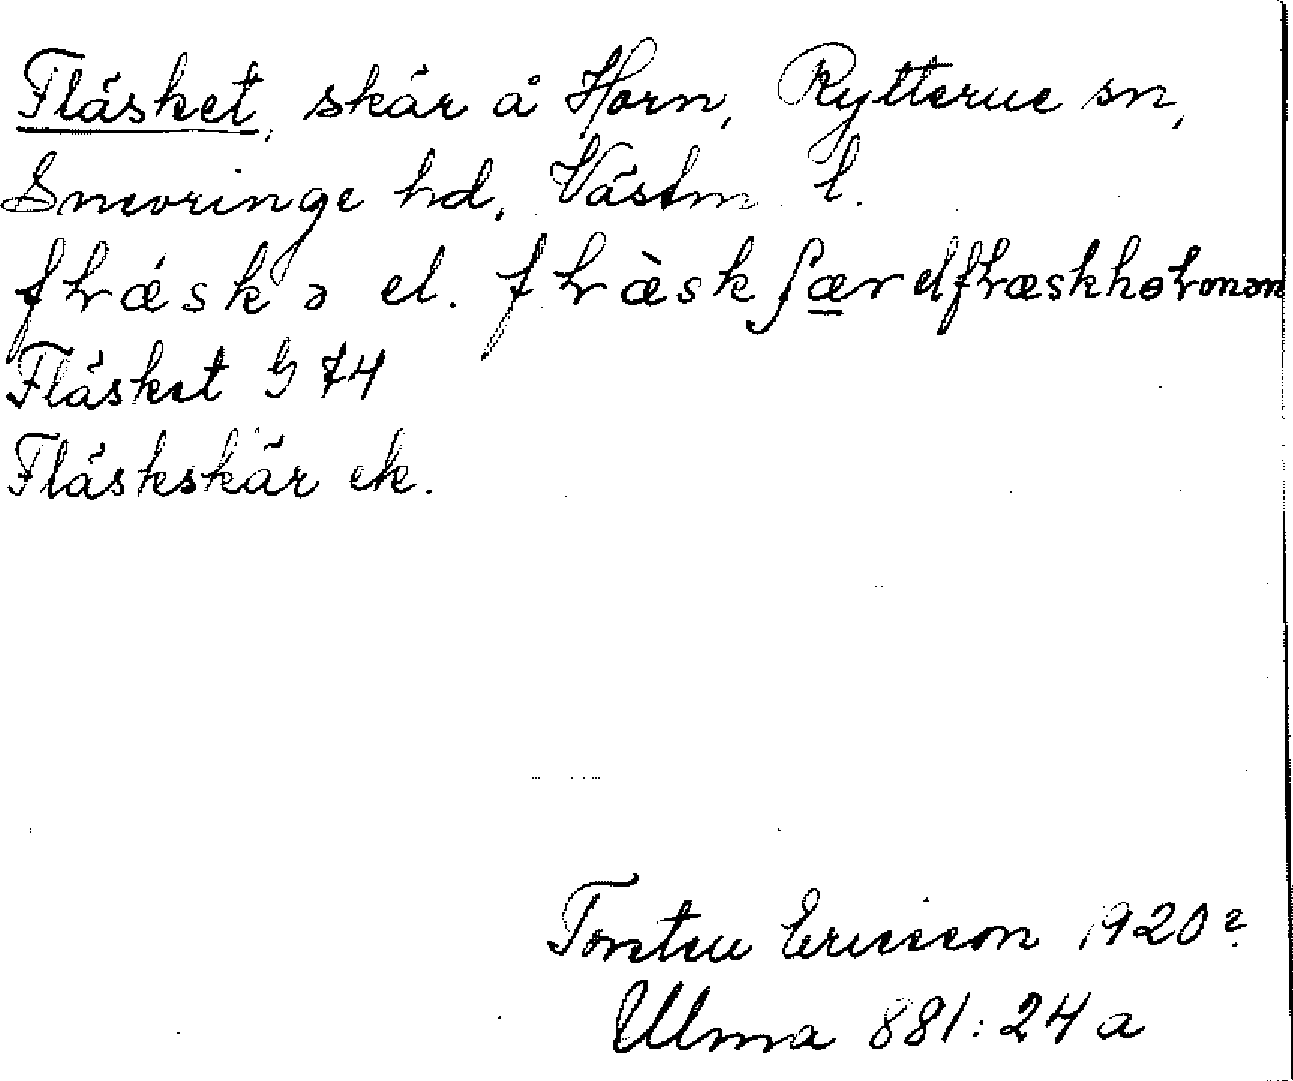 Fläsket, skär å Horn, Rytterne sn,
Snevringe hd, Västm l.
flrǽskə el. flræ̀skʃær el flræskhɵlmən
Fläsket G 74
Fläskskär ek.
Torsten Ericsson 1920?
Ulma 881:24a